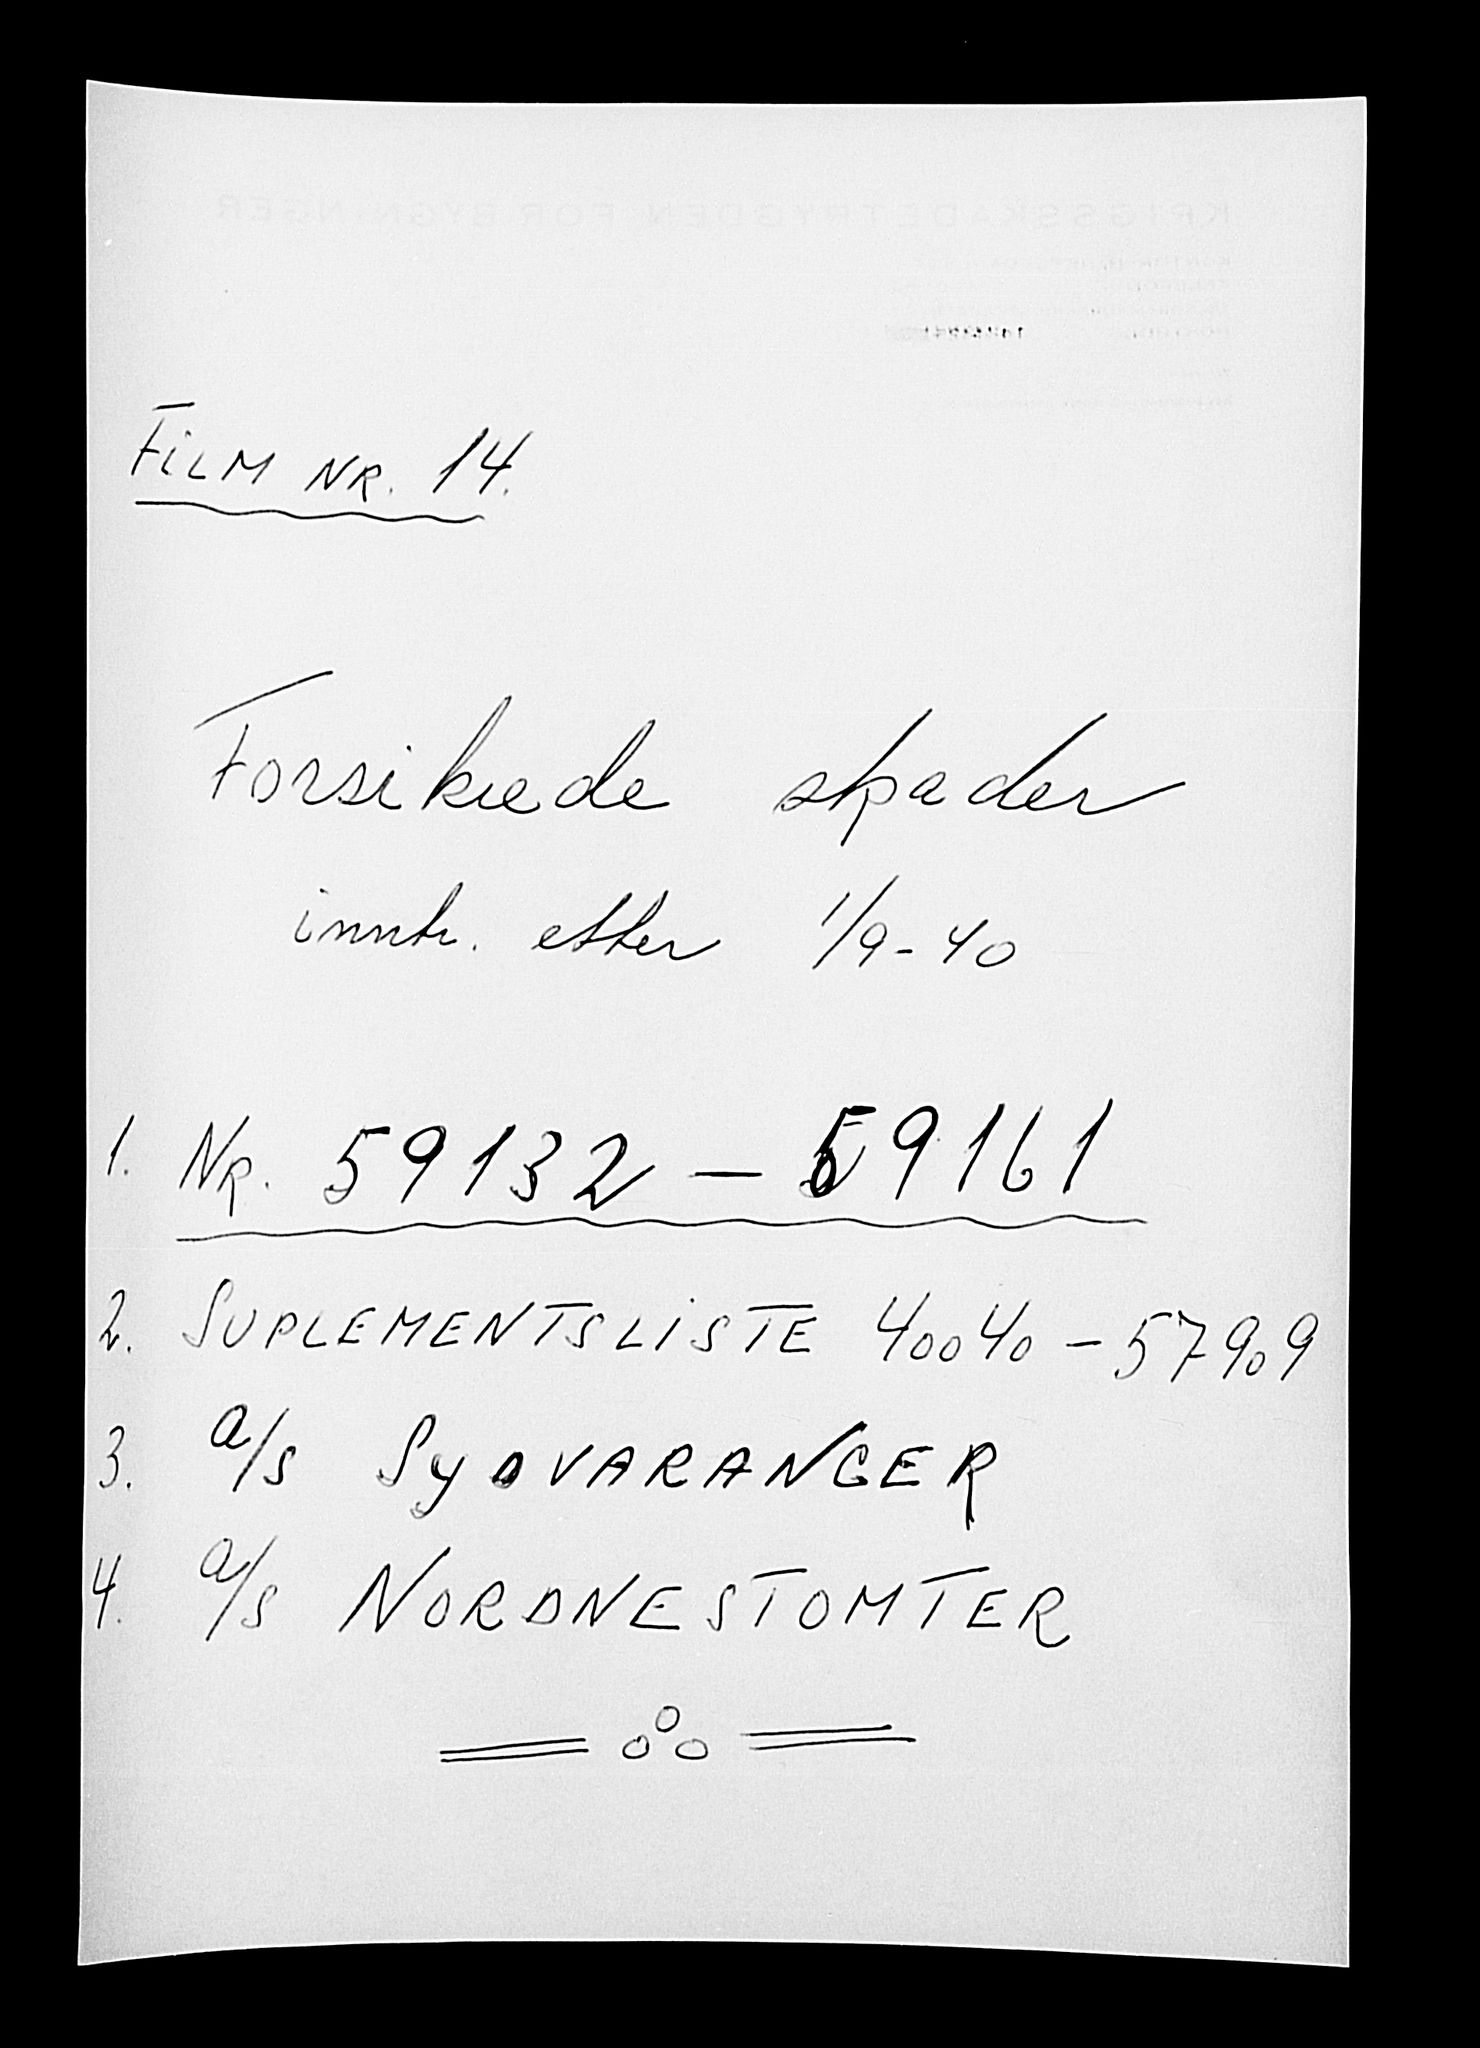 FILM NR. 14.
Forsikrede skader
inntr. etter 1/9-40
1. NR. 59132 — 59161
2. SUPLEMENTSLISTE 40040 — 57909
3. a/s SYDVARANGER
4. a/s NORDNESTOMTER